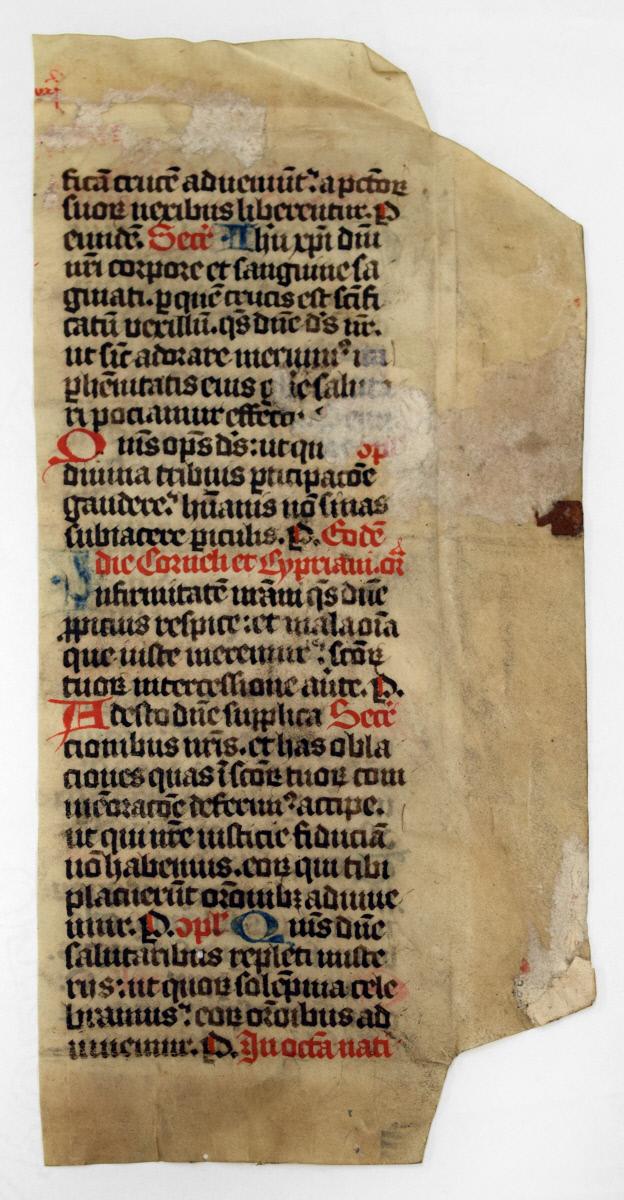 ficā crucē adueniūt: a pctōꝝ
suoꝝ nexibus liberentur. P
eiundē. Secr̄ Ihū xp̄i dn̄i
nr̄i corpore et sanguine sa
ginati. ꝑ quē crucis est sc̄ifi
catū vexillū. qs̄ dn̄e d's nr̄.
ut sic̄ adorare meruim⁹
ꝑhēnitatis eius salu
ri pociamur effectu
Q uis op̄s d's: ut qu opl'
diuina tribuis ꝑticipatōe
gaudere: hūanis nō sinas
subiacere ꝑiculis. P. Eodē
die Corneli et Cypriani. or̄
Infirmitatē nrām qs̄ dn̄e
ꝓpicius respice: et mala oīa
que iuste meremur: sc̄oꝝ
tuoꝝ intercessione au̅te. P.
Adesto dn̄e supplica Secr̄
tionibus nr̄is. et has obla
ciones quas ī sc̄oꝝ tuoꝝ com
mēoratōe deferim⁹ accipe.
ut qui nr̄e iusticie fiduciā
nō habemus. eoꝝ qui tibi
placuerūt or̄onibꝫ adiuue
mur. P. opl' Quis dn̄e
salutaribus repleti miste
riis: ut quoꝝ solēpnia cele
bramus: eoꝝ or̄oibus ad
iuuemur. P. In octā nati